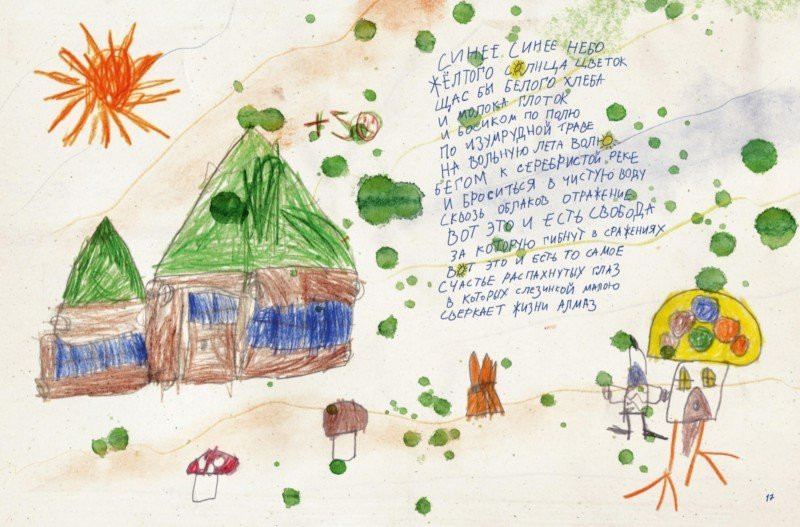 +50
СИНЕЕ СИНЕЕ НЕБО
ЖЁЛТОГО СОЛНЦА ЦВЕТОК
ЩАС БЫ БЕЛОГО ХЛЕБА
И МОЛОКА ГЛОТОК
И БОСИКОМ ПО ПОЛЮ
ПО ИЗУМРУДНОЙ ТРАВЕ
НА ВОЛЬНУЮ ЛЕТА ВОЛЮ
БЕГОМ К СЕРЕБРИСТОЙ РЕКЕ
И БРОСИТЬСЯ В ЧИСТУЮ ВОДУ
СКВОЗЬ ОБЛАКОВ ОТРАЖЕНИЕ
ВОТ ЭТО И ЕСТЬ СВОБОДА
ЗА КОТОРУЮ ГИБНУТ В СРАЖЕНИЯХ
ВОТ ЭТО И ЕСТЬ ТО САМОЕ
СЧАСТЬЕ РАСПАХНУТЫХ ГЛАЗ
В КОТОРЫХ СЛЕЗИНКОЙ МАЛОЮ
СВЕРКАЕТ ЖИЗНИ АЛМАЗ
17